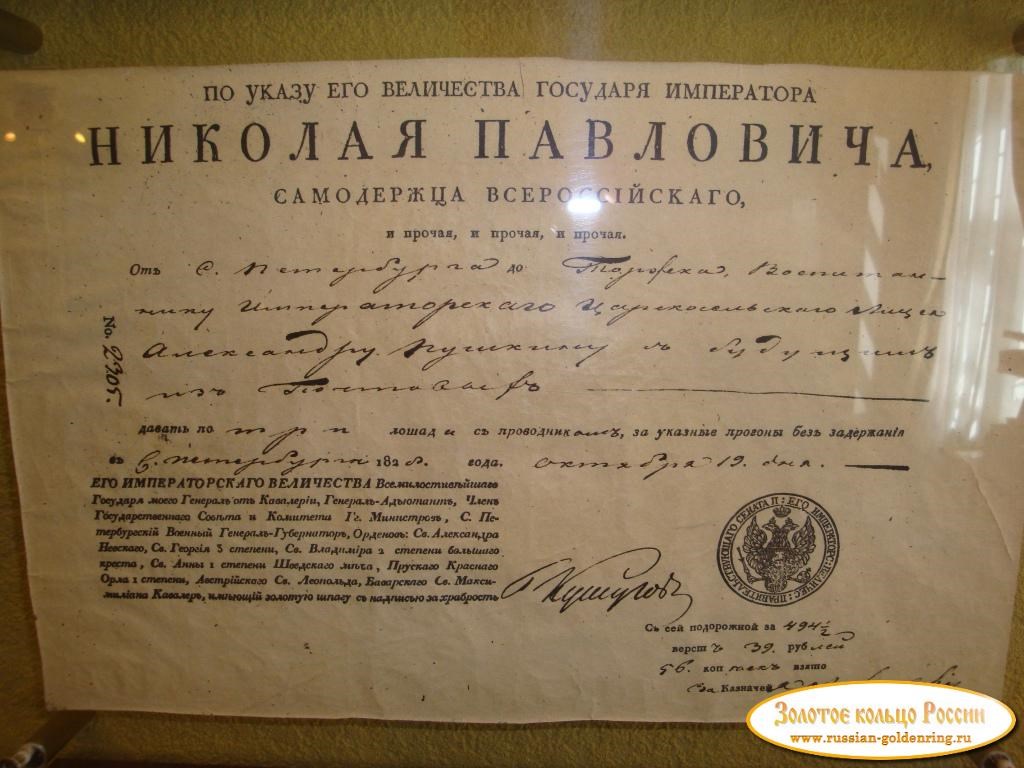 ПО УКАЗУ ЕГО ВЕЛИЧЕСТВА ГОСУДАРЯ ИМПЕРАТОРА
НИКОЛАЯ ПАВЛОВИЧА,
САМОДЕРЖЦА ВСЕРОССІЙСКАГО,
и прочая, и прочая, и прочая.
Отъ С. Петербурга до Торжка, Воспитан-
нику Императорскаго Царскосельскаго Лицея
Александру Пушкину съ будущимъ
изъ
No. 2305.
давать по три лошади съ проводникомъ, за указные прогоны безъ задержанія
въ С. Петербургѣ 1828. года. октября 19. дня.
ЕГО ИМПЕРАТОРСКАГО ВЕЛИЧЕСТВА Всемилостивѣйшаго
Государя моего Генералъ отъ Кавалеріи, Генералъ-Адъютантъ, Членъ
Государственнаго Совѣта и Комитета Гг. Министровъ, С. Пе-
тербургскій Военный Генералъ-Губернаторъ, Орденовъ: Св. Александра
Невскаго, Св. Георгія 3 степени, Св. Владиміра 2 степени большаго
креста, Св. Анны 1 степени Шведскаго меча, Прускаго Краснаго
Орла 1 степени, Австрійскаго Св. Леопольда, Баварскаго Св. Макси-
миліана Кавалеръ, имѣющій золотую шпагу съ надписью за храбрость
Съ сей подорожной за 494½
верстъ 39. рублей
56. копѣекъ взято
За Казначея
Золотое кольцо России
www.russian-goldenring.ru